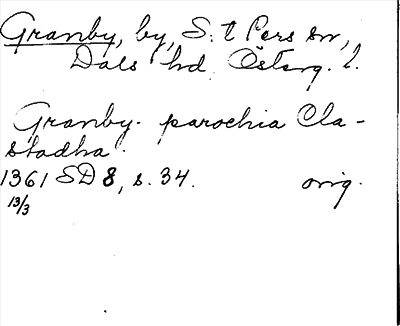 Granby, by, S:t Pers sn,
Dals hd. Österg. l.
Granby. parochia Cla-
stadha.
1361 SD 8, s. 34. orig.
13/3